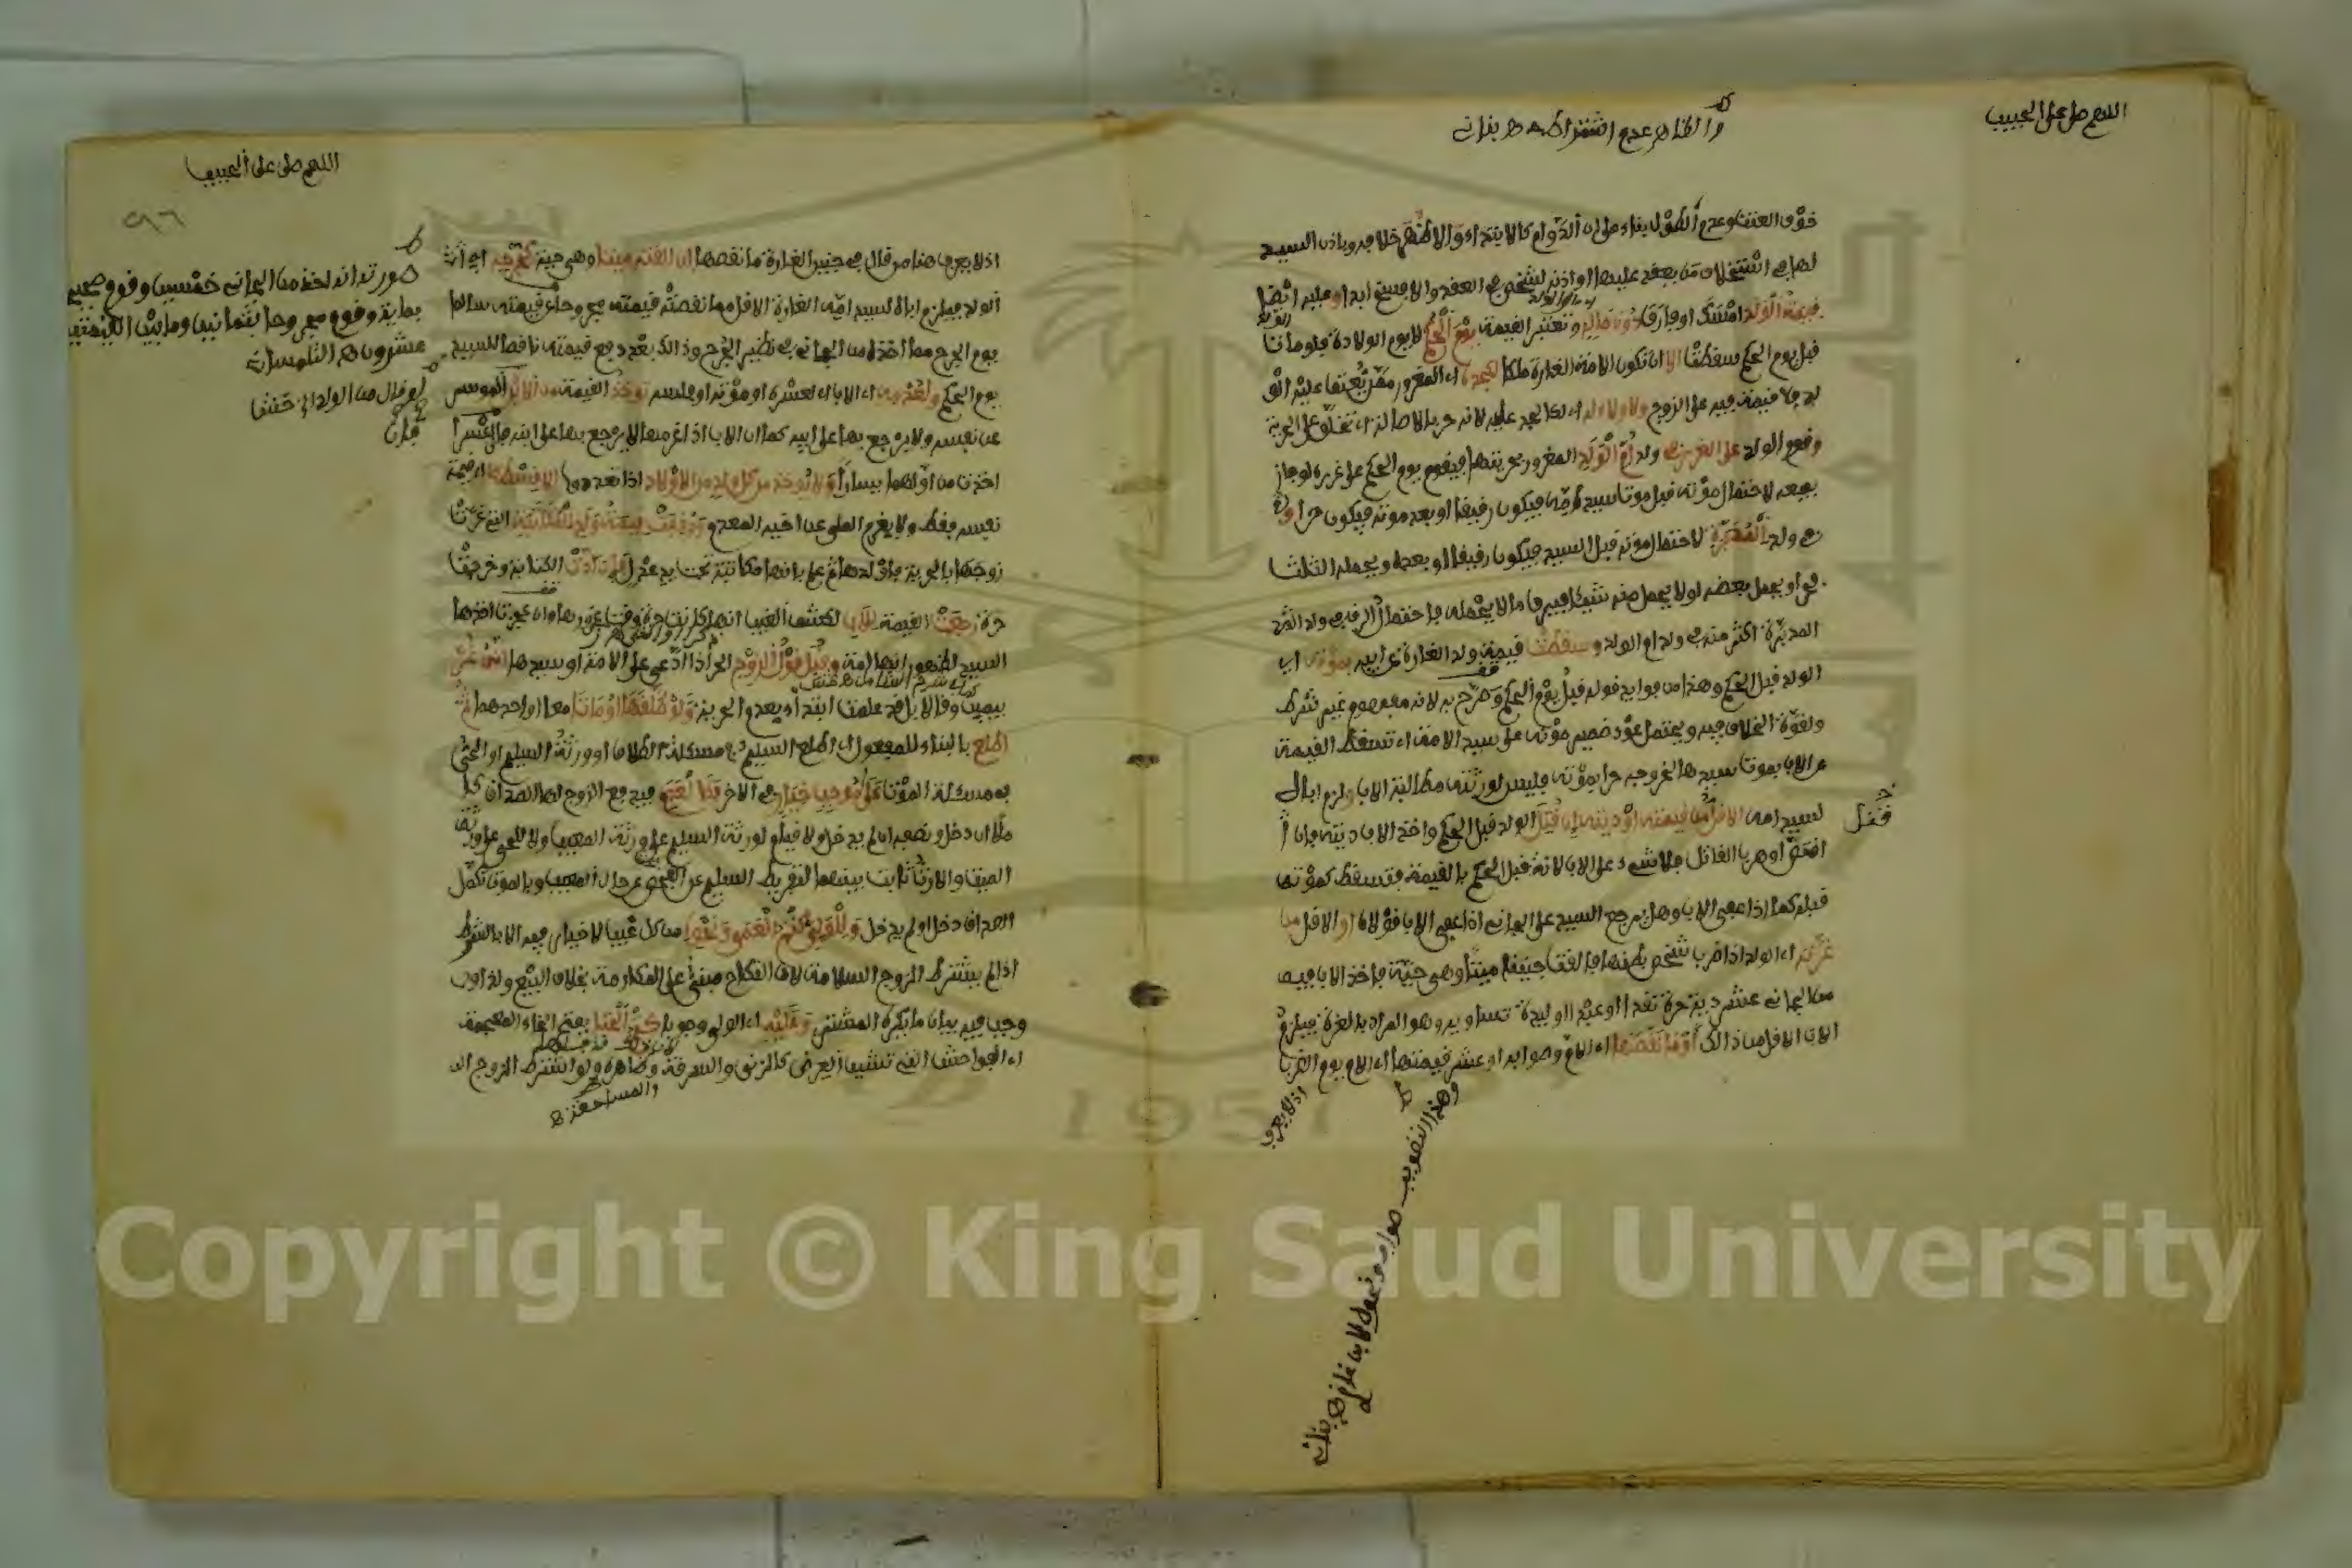 اللهم صل على الحبيب
والظاهر عدم اشتراطه ه بناني
خوف العنت وعدم الطول بناء على ان الدوام كالابتداء والاظهر خلافه وباذن السيد
لها في استخلاف من يعقد عليها او اذنه لشخص في العقد والا فسخ ابدا وعليه ايضا
قيمة الولد امسك او فارق دون ماله وتعتبر القيمة يوم الحكم لا يوم الولادة فلو مات
قبل يوم الحكم سقطت الا ان تكون الامة الغارة ملكا لكجده اي المغرور ممن يعتق عليه الو
لد فلا قيمة فيه على الزوج ولا ولاء له اي لكالجد عليه لانه حر بالاصالة اي تخلق على الحرية
وقوم الولد على الغرر في ولد ام الولد المغرور بحريتها فيقوم يوم الحكم على غرره لو جاز
بيعه لاحتمال موته قبل موت سيد امه فيكون رقيقا او بعد موته فيكون حرا و
في ولد المدبرة لاحتمال موته قبل السيد فيكون رقيقا او بعده ويحمله الثلث
فحر او يحمل بعضه او لا يحمل منه شيئا فيرق ما لا يحمله فاحتمال الرق في ولد
المدبرة اكثر منه في ولد ام الولد وسقطت قيمة ولد الغارة عن ابيه بموته اي
الولد قبل الحكم وهذا من فوايد قوله قبل يوم الحكم وصرح به لانه مفهوم غير شرط
ولقوة الخلاف فيه ويحتمل عود ضمير موته على سيد الامة اي تسقط القيمة
عن الاب بموت سيدها لخروجه حرا بموته فليس لورثته مطالبة الاب ولزم اباه
لسيد امه الاقل من قيمته او ديته ان قتل الولد قبل الحكم واخذ الاب ديته فان
اقتص او هرب القاتل فلا شيء على الاب لانه قبل الحكم بالقيمة فتسقط كموته
قبله كما اذا عفى الاب وهل يرجع السيد على الجاني اذا عفى الاب قولان او الاقل من
غرته اي الولد اذا ضرب شخص بطنها فالقت جنينا ميتا وهي حية فاخذ الاب فيه
من الجاني عشر دية حرة نقدا او عبدا او وليدة تساويه وهو المراد بالغرة فيلزم
الاب الاقل من ذلك او ما نقصها اي الام وصوابه او عشر قيمتها اي الام يوم الضرب
اذ لا يعرف
وهذا التصويب صوابه ونحوه لابن غازي ه بناني
فقتل
اللهم صل على الحبيب
اذ لا يعرف هنا من قال في جنين الغارة ما نقصها ان القته ميتا وهي حية كجرحه اي
الولد فيلزم اباه لسيد امه الغارة الاقل مما نقصته قيمته مجروحا عن قيمته سالما
يوم الجرح مما اخذ من الجاني في نظير الجرح وذلك بعد دفع قيمته ناقصا للسيد
يوم الحكم ولعدمه اي الاب اي لعسره او موته او فلسه توخذ القيمة من الابن الموسر
عن نفسه ولا يرجع بها على ابيه كما ان الاب اذا غرمها لا يرجع بها على ابنه فان اعسرا
اخذت من اولهما يسارا ولا يوخذ من كل ولد من الاولاد اذا تعددوا الا قسطه اي قيمة
نفسه فقط ولا يغرم الملي عن اخيه المعدم ووقفت قيمة ولد المكاتبة التي غرت
زوجها بالحرية فاولدها ثم علم بانها مكاتبة تحت يد عدل فان ادت الكتابة وخرجت
حرة رجعت القيمة للاب لكشف الغيب انها كانت حرة وقت غروره وان عجزت اخذها
السيد لظهور انها امة وقبل قول الزوج الحر اذا ادعى على الامة او سيدها انه غر
بيمين وقالا بل قد علمت ابتداء بعدم الحرية ولو طلقها او ماتا معا او احدهما ثم
اطلع بالبناء للمفعول اي اطلع السليم في مسئلة الطلاق او ورثة السليم او الحي
في مسئلة الموت على موجب خيار في الاخر فكالعدم فيدفع الزوج لها الصداق كا
ملا ان دخل ونصفه ان لم يدخل ولا قيام لورثة السليم على ورثة المعيب ولا للحي على ورثة
الميت والارث ثابت بينهما لتفريط السليم عن الفحص عن حال المعيب وبالموت تكمل
الصداق دخل او لم يدخل وللولي كتم العمى ونحوه من كل عيب لا خيار فيه الا بالشرط
اذا لم يشترط الزوج السلامة لان النكاح مبني على المكارمة بخلاف البيع ولذا
وجب فيه بيان ما يكره المشتري وعليه اي الولي وجوبا كتم الخنا بفتح الخاء المعجمة
اي الفواحش التي تشين العرض كالزنى والسرقة وظاهره ولو اشترط الزوج
صورته انه اخذ من الجاني خمسين وقوم صحيحا
بماية وقوم مجروحا بثمانين وما بين القيمتين
عشرون ه التلمساني
لو قال من الولد